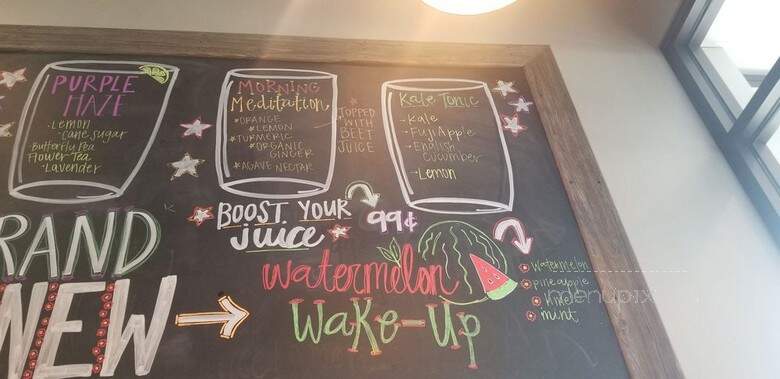 PURPLE
HAZE
- Lemon
- Cane sugar
- Butterfly Pea
Flower Tea
- Lavender
MORNING
Meditation
*ORANGE
*LEMON
*TURMERIC
*ORGANIC
GINGER
*AGAVE NECTAR
TOPPED
WITH
BEET
JUICE
Kale Tonic
- Kale
- Fuji Apple
- English
Cucumber
- Lemon
BOOST YOUR
juice
99¢
RAND
NEW
watermelon
Wake-Up
watermelon
pineapple
lime
mint